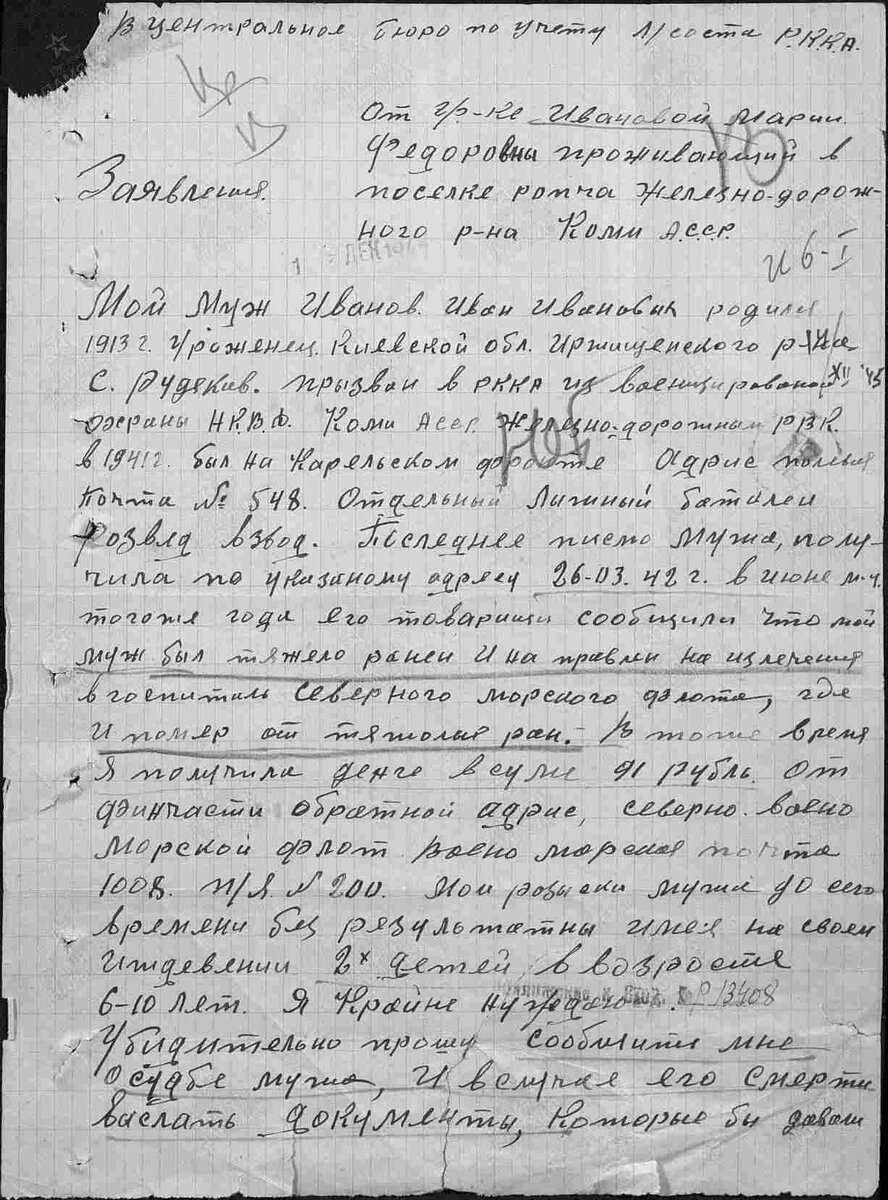 В центральное бюро по учету л/соста Р.К.К.А.
От гр-ке Ивановой Марии
Федоровны проживающий в
Заявления. поселке ропча Железно-дорож-
ного р-на Коми А.С.С.Р.
1 ДЕК 194
и 6-I
Мой Муж Иванов. Иван Иванович родился
1913 г. Уроженец. Киевской обл. Иржищенского р-на
с. Рудяков. призван в РККА из военизированой
охраны Н.К.В.Д. Коми АССР. Железно-дорожным РВК.
в 1941 г. был на Карельском фронте Адрис полевая
Почта № 548. Отдельный Лыжный баталеи
розвед взвод. Последнее писмо мужа, полу-
чила по указаному адресу 26-03.42 г. в июне м-ц.
тогоже года его товарищи сообщили что мой
муж был тяжело ранен и на правлен на излечения
в госпиталь северного морского флота, где
и помер от тяжолия ран. В тоже время
я получила денге в суме 91 рубль. от
финчасти обратной адрис, северно. воено
морской флот воено морская почта
1008. п/я. N 200. Мои розыски мужа до сего
времени без результатны имея на своем
иждевении 2х детей в возросте
6-10 лет. Я Крайне нуждаюсь.
Вход. № Р13408
Убидительно прошу сообщите мне
о судбе мужа, и в случае его смерти
васлать документы, которые бы давали